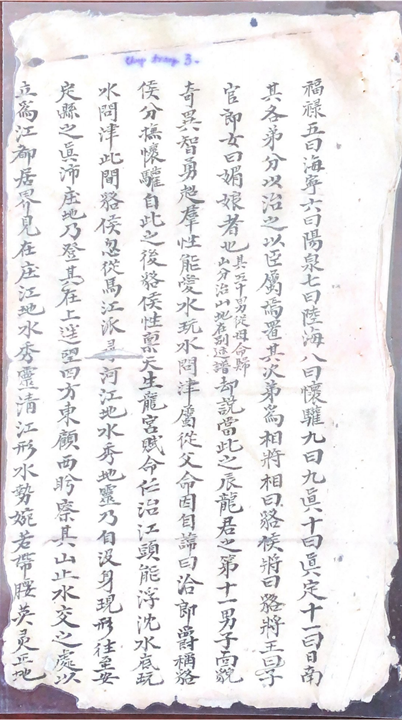 Chụp trang 3.
福禄五曰海寧六曰陽泉七曰陸海八曰懷驩九曰九真十曰真定十一曰日南
其各弟分以治之以臣屬焉置其次弟為相將相曰貉侯將曰貉將王曰子
官郎女曰媚娘者也其五十男從母命歸山分治山地在別述譜却說當此之辰龍君之第十一男子面貌
奇異智勇超羣性能愛水玩水問津屬從父命因自諦曰洽郎爵稱貉
侯分撫懷驩自此之後貉侯性稟天生龍宮賦命仁治江頭能浮沈水底玩
水問津此間貉侯忽從馬江派尋河江地水秀地靈乃自没身現形往至安
定縣之真沛庄地乃登其在上遙望四方東顧西盼察其山止水交之處以
立為江都居界見在庄江地水秀靈清江形水勢婉若帶腰英灵丘地